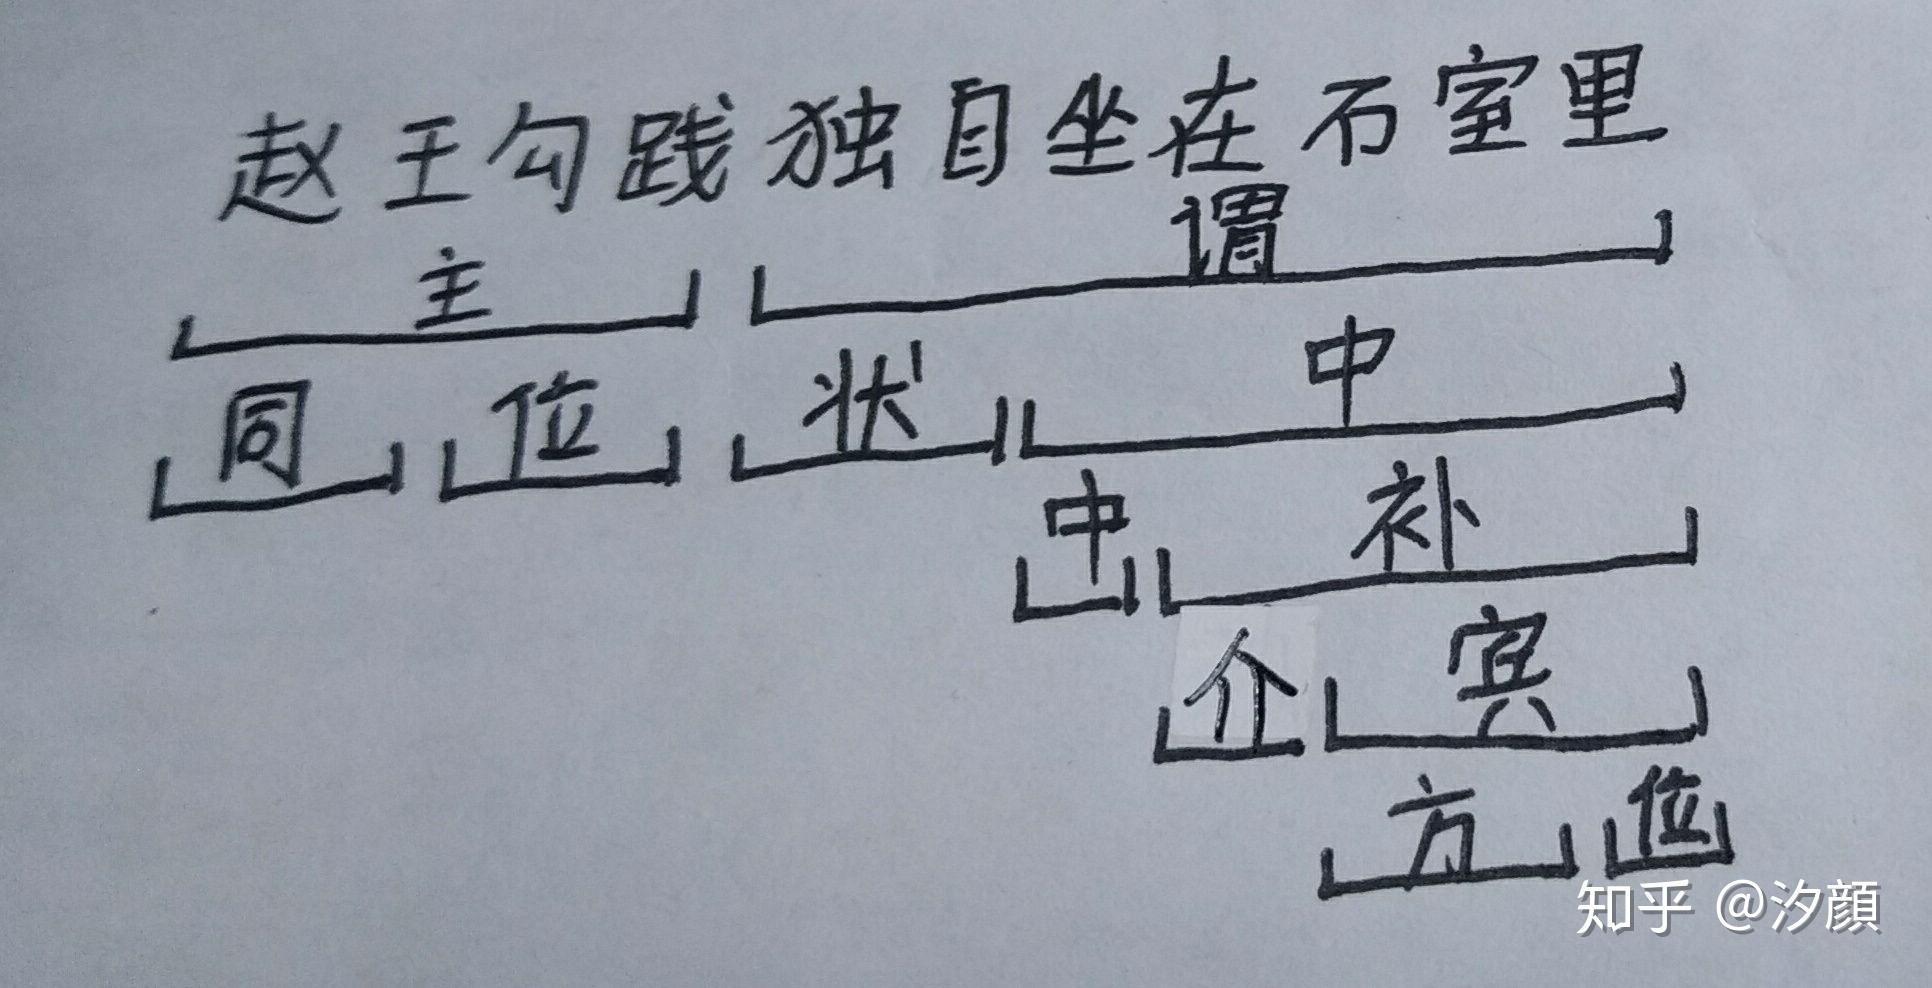 赵王勾践独自坐在石室里
主 谓
同 位 状 中
中 补
介 宾
方 位
知乎 @汐顔